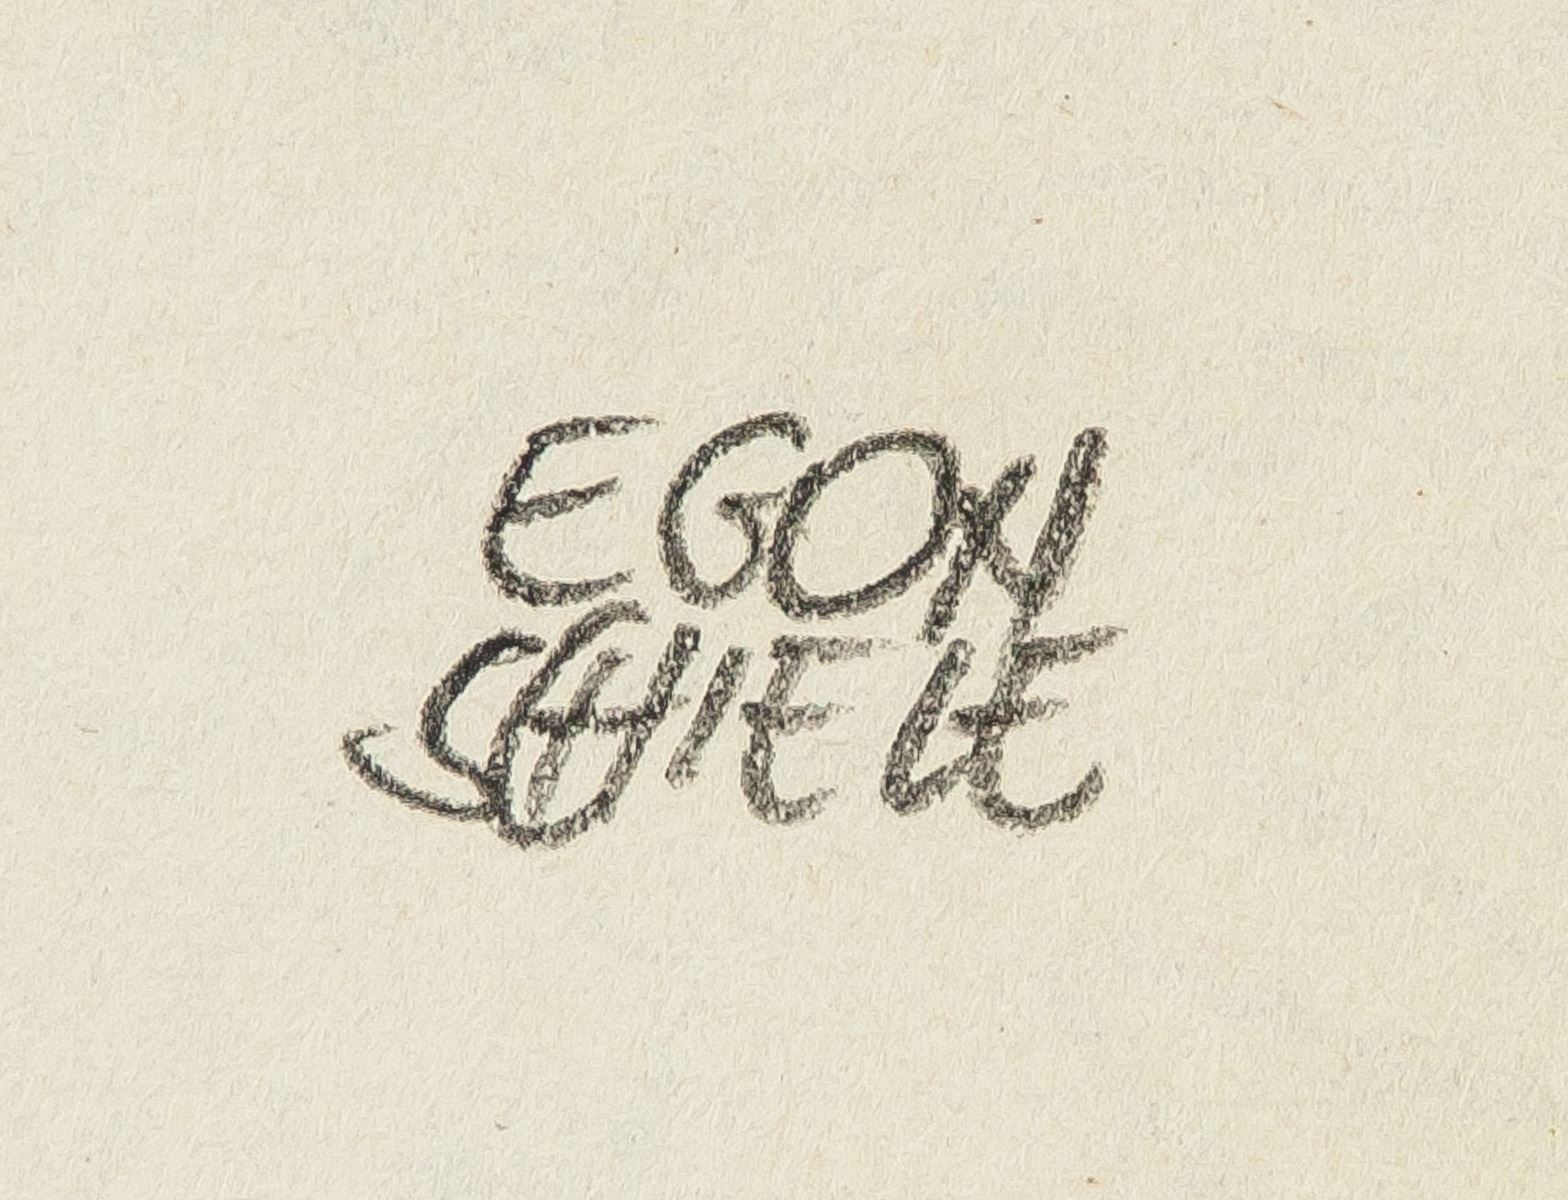 EGON
SCHIELE